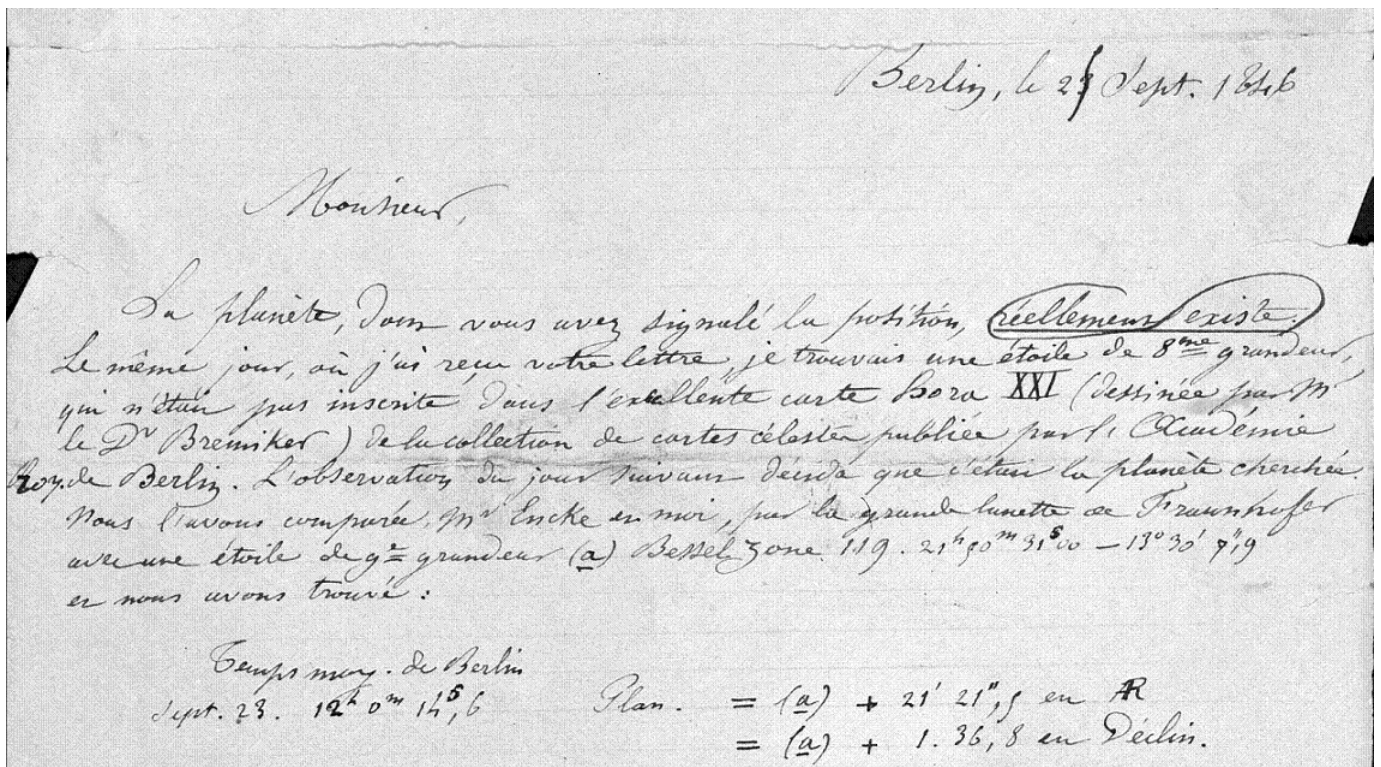 Berlin, le 25 Sept. 1846
Monsieur,
La planète, dont vous avez signalé la position, réellement existe.
Le même jour, où j'ai reçu votre lettre, je trouvais une étoile de 8me grandeur,
qui n'était pas inscrite dans l'excellente carte Hora XXI (dessinée par Mr
le Dr Bremiker) de la collection de cartes célestes publiée par l'Académie
Roy. de Berlin. L'observation du jour suivant décida que c'était la planète cherchée.
Nous l'avons comparée, Mr Encke et moi, par la grande lunette de Fraunhofer
avec une étoile de 9e grandeur (a) Bessel Zone 119. 21h 50m 31s,00 – 13° 30' 7",9
et nous avons trouvé :
Temps moy. de Berlin
Sept. 23. 12h 0m 14s,6 Plan. = (a) + 21' 21",5 en AR
= (a) + 1. 36,8 en Déclin.